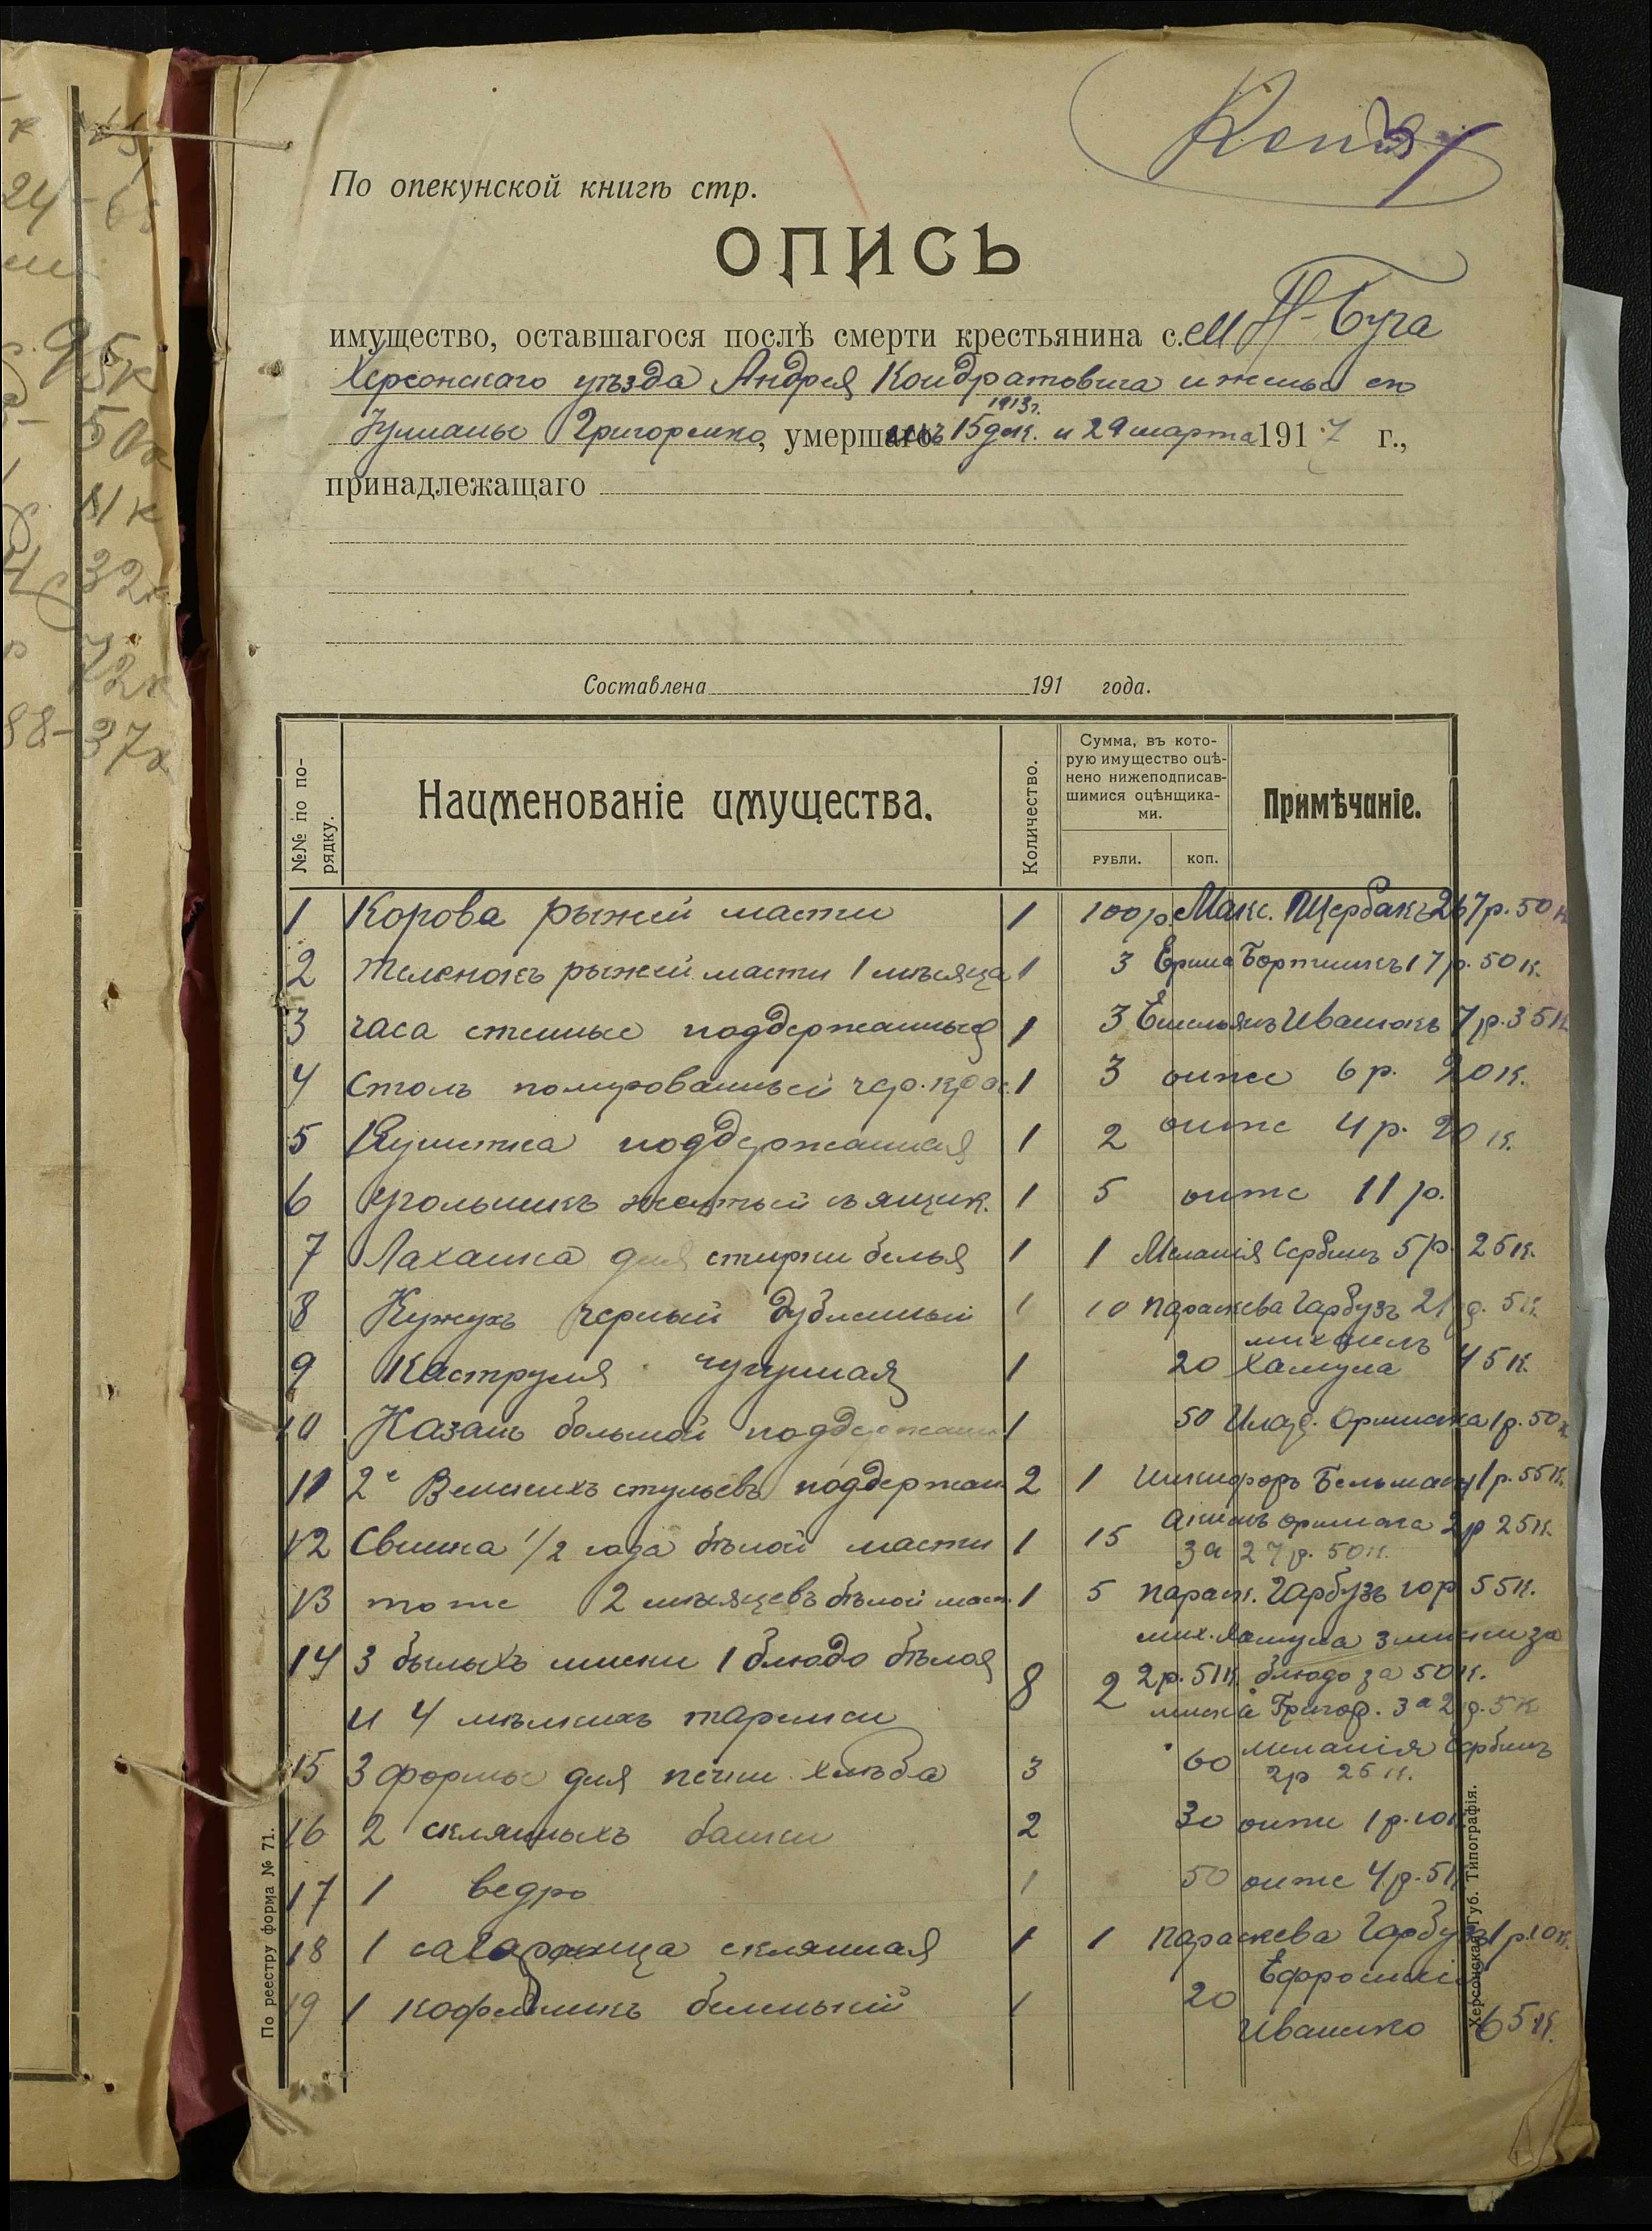 Копія
По опекунской книгѣ стр.
ОПИСЬ
имущество, оставшагося послѣ смерти крестьянина с. м Н-Буга
Херсонскаго уѣзда Андрея Кондратовича и жены ею
Ѳульаны Григоренко, умерш 1913г. 15 дек. и 29 марта 1917 г.,
принадлежащаго
Составлена 191 года.
№№ по порядку.
Наименованіе имущества.
Количество.
Сумма, въ кото-
рую имущество оцѣ-
нено нижеподписав-
шимися оцѣнщика-
ми.
РУБЛИ.
КОП.
Примѣчаніе.
1 Корова рыжей масти 1 100 р. Макс. Щербакъ 267 р. 50 к
2 Теленокъ рыжей масти 1 мѣсяца 1 3 Ерина Бортникъ 17 р. 50 к.
3 часа стенные поддержанные 1 3 Емельянъ Иванюкъ 7 р. 35 к
4 Столъ полированный чер. крас. 1 3 онже 6 р. 20 к.
5 Кушетка поддержанная 1 2 онже 4 р. 20 к.
6 угольникъ желтый съ ящик. 1 5 онже 11 р.
7 Лаханка для стирки белья 1 1 Меланія Сербинъ 5 р. 25 к.
8 Кужухъ черный дубленный 1 10 Параскева Гарбузъ 21 р. 5 к
9 Каструля чугунная 1 20 михаилъ Хамула 45 к.
10 Казанъ большой поддержанн 1 50 Орминска 1 р. 50 к
11 2е Венскихъ стульевъ поддержан 2 1 Никифоръ Бельман 1 р. 55 к.
12 Свинка 1/2 года бѣлой масти 1 15 2 р 25 к.
за 27 р. 50 к.
13 тоже 2 мѣсяцевъ бѣлой маст. 1 5 параск. Гарбузъ 10 р 55 к.
14 3 былыхъ миски 1 блюдо бѣлоя 8 2 мих. Хамула 3 миски за
2 р. 51 к. блюдо за 50 к.
и 4 мѣлкихъ тарелки Григор. за 2 р. 5 к
15 3 формы для печки хлѣба 3 60 меланія Сербинъ
2 р 25 к.
16 2 склянныхъ банки 2 30 онже 1 р. 10 к
17 1 ведро 1 50 онже 4 р. 51
18 1 сахарница склянная 1 1 Параскева Гарбузъ 1 р. 10 к.
19 1 кофейникъ беленький 1 20 Ефросинія
Иваненко 65 к.
По реестру форма № 71.
Херсонская Губ. Типографія.
к 15
24 - 6
95к
50к
11 к
32к
72к
88-37к